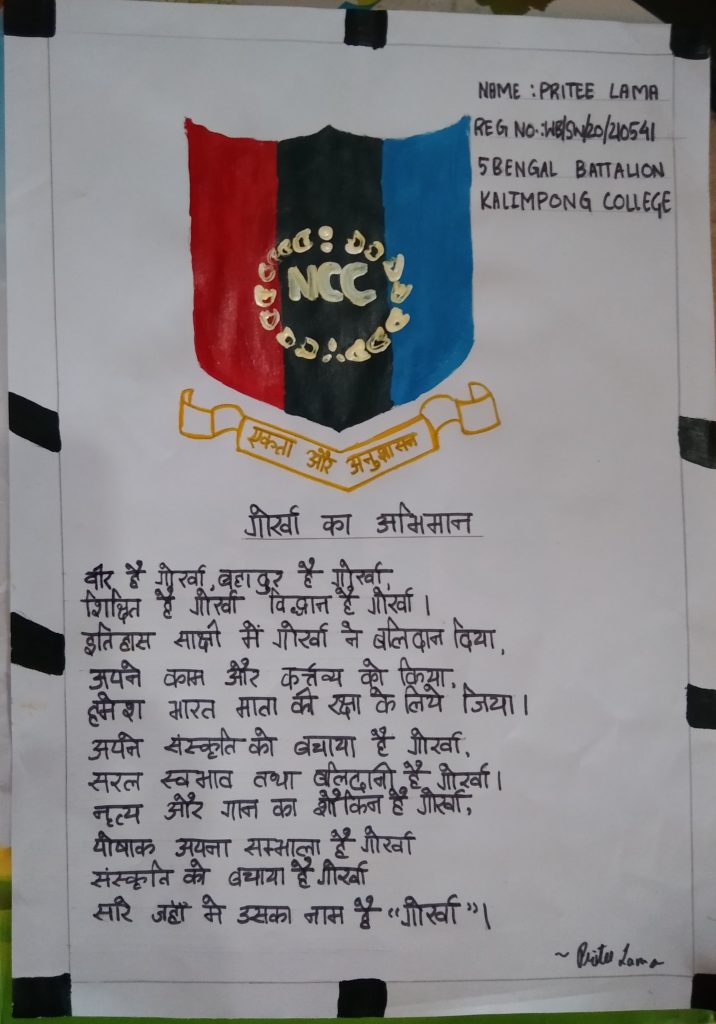 NAME : PRITEE LAMA
REG NO.:WB/SW/20/210541
5 BENGAL BATTALION
KALIMPONG COLLEGE
NCC
एकता और अनुशासन
गोर्खा का अभिमान
वीर है गोर्खा, बहादुर है गोर्खा,
शिक्षित है गोर्खा विद्धान है गोर्खा।
इतिहास साक्षी में गोर्खा ने बलिदान दिया,
अपने काम और कर्त्तव्य को किया,
हमेश भारत माता की रक्षा के लिये जिया।
अपने संस्कृति को बचाया है गोर्खा,
सरल स्वभाव तथा बलिदानी है गोर्खा।
नृत्य और गान का शौकिन है गोर्खा,
पोषाक अपना सम्भाला है गोर्खा
संस्कृति को बचाया है गोर्खा
सारे जहाँ मे उसका नाम है “गोर्खा”।
~ Pritee Lama